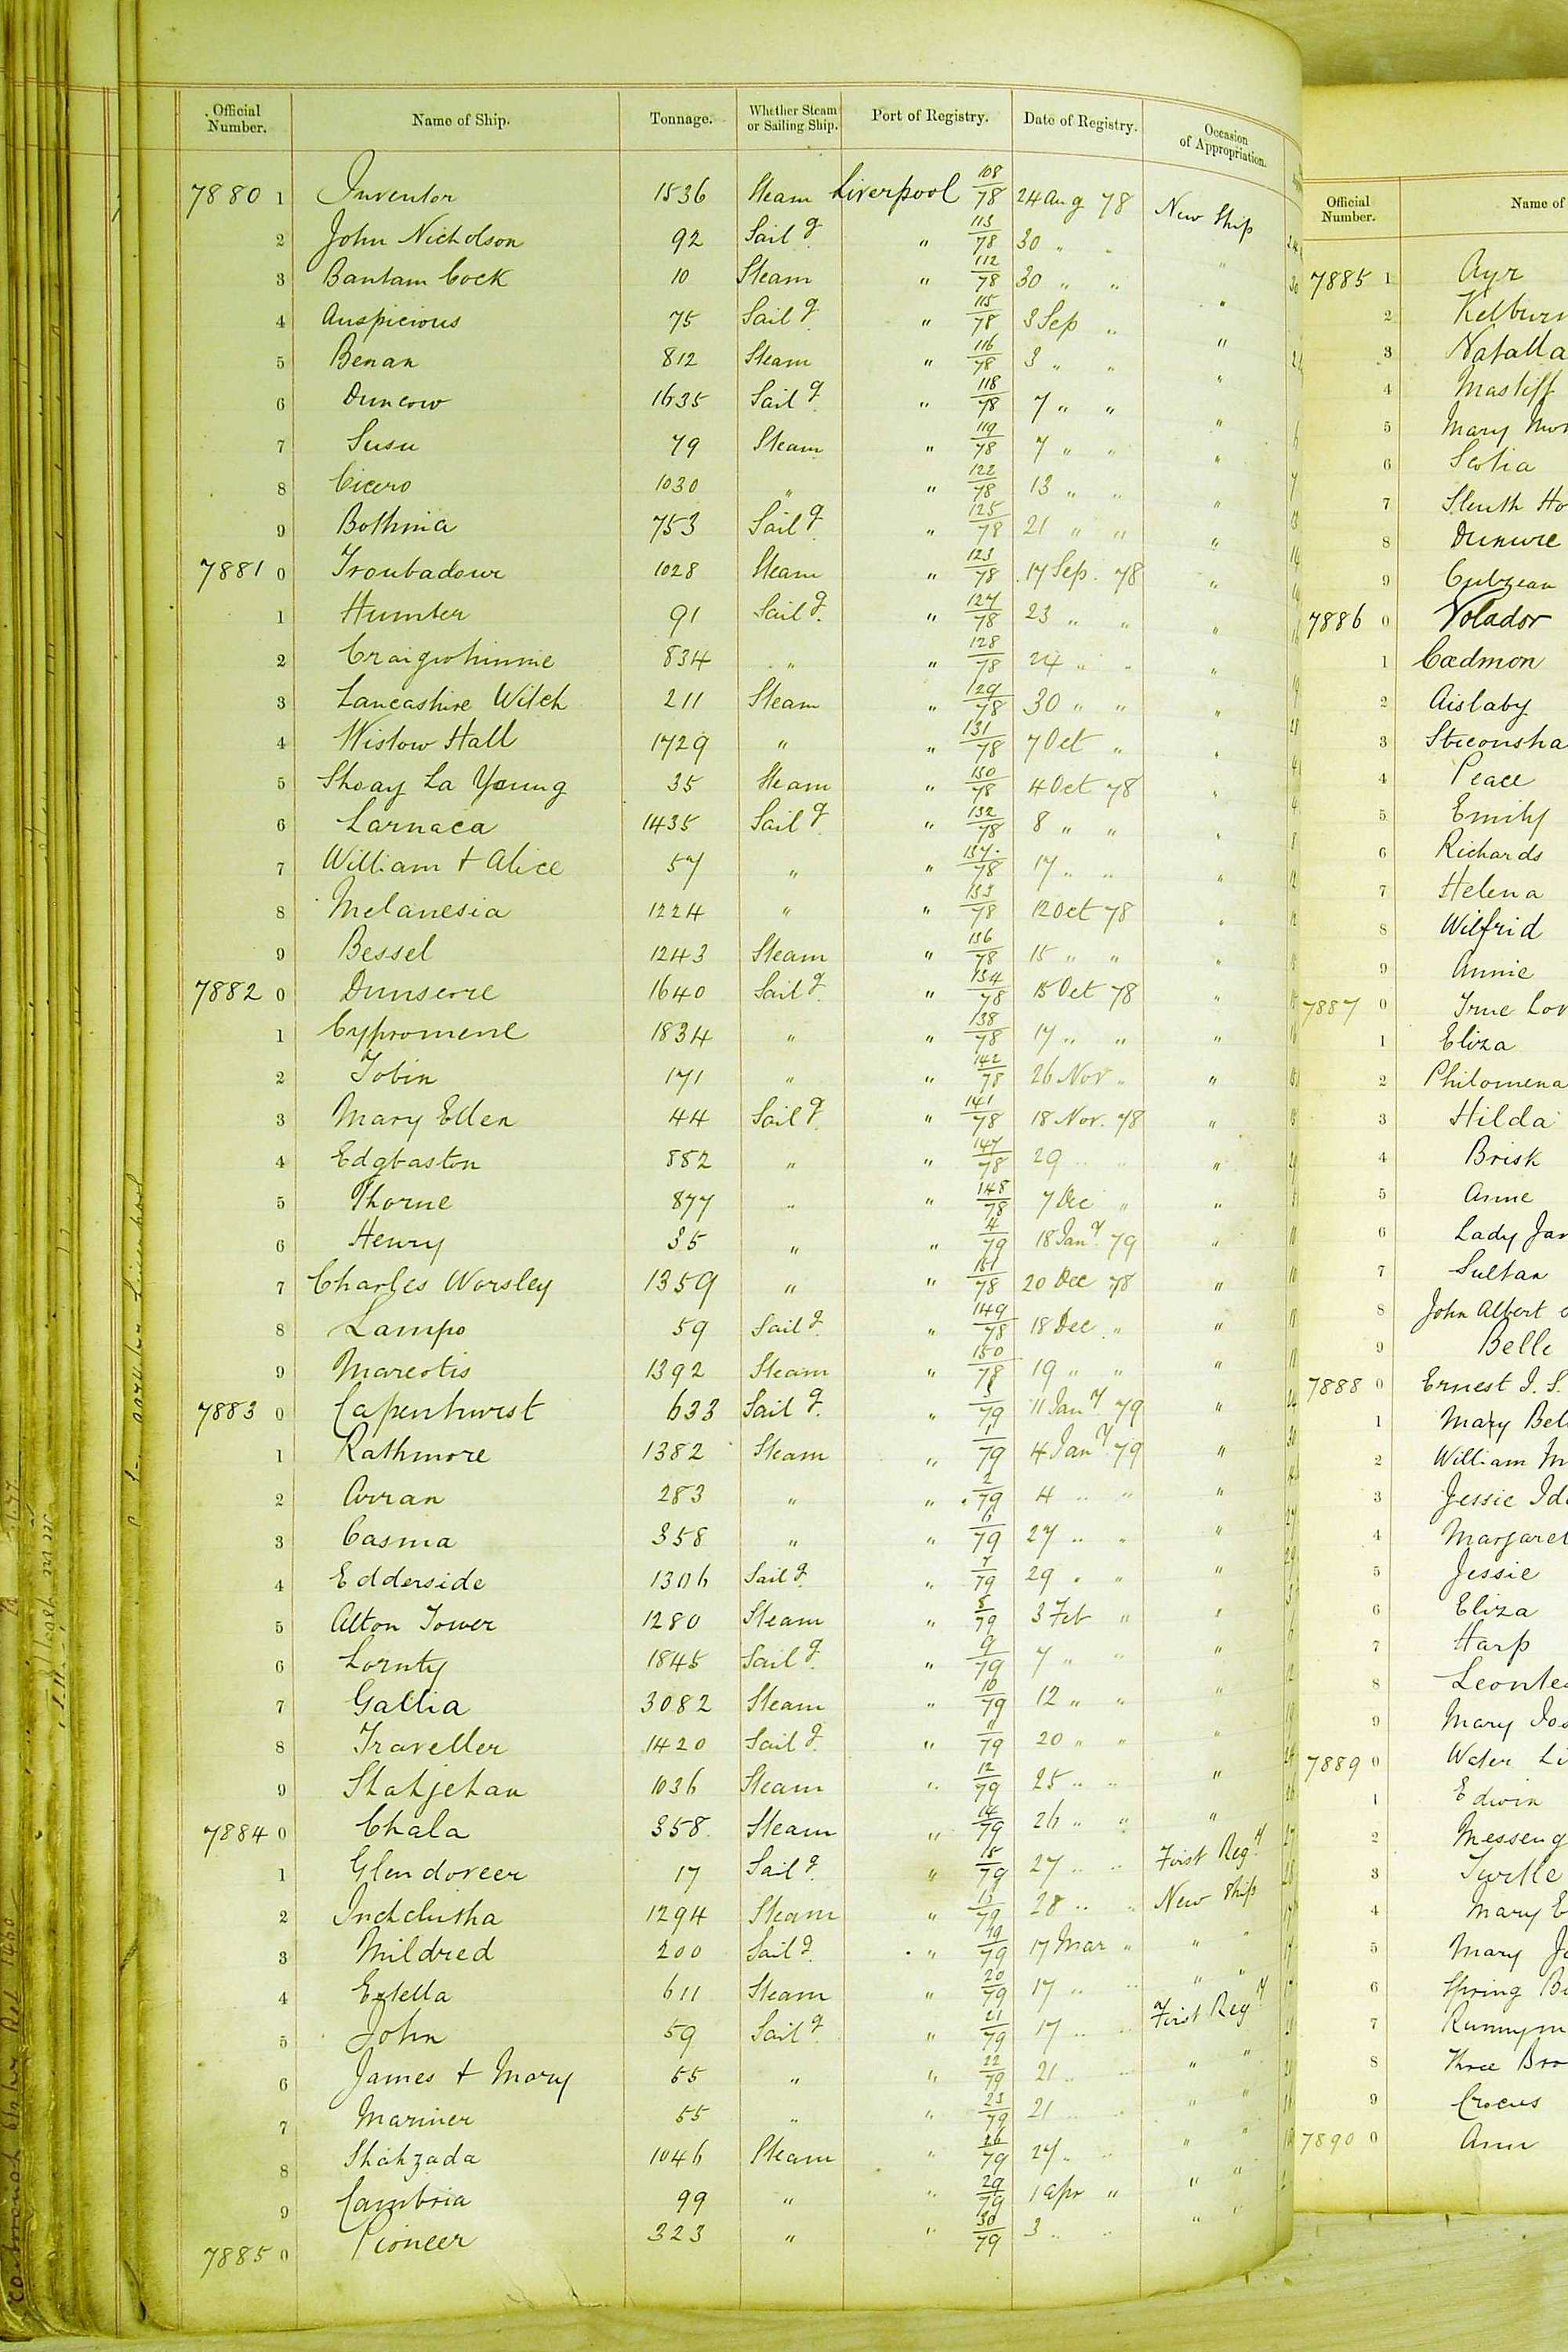 Official Number. Name of Ship. Tonnage. Whether Steam or Sailing Ship. Port of Registry. Date of Registry. Occasion of Appropriation.
7880 1 Inventor 1536 Steam Liverpool 108/78 24 Aug 78 New Ship
2 John Nicholson 92 Sailg " 113/78 30 " " "
3 Bantam Cock 10 Steam " 112/78 30 " " "
4 Auspicious 75 Sailg " 115/78 3 Sep " "
5 Benan 812 Steam " 116/78 3 " " "
6 Duncow 1635 Sailg " 118/78 7 " " "
7 Susu 79 Steam " 119/78 7 " " "
8 Cicero 1030 " " 122/78 13 " " "
9 Bothnia 753 Sailg " 125/78 21 " " "
7881 0 Troubadour 1028 Steam " 123/78 17 Sep. 78 "
1 Humber 91 Sailg " 127/78 23 " " "
2 Craigwhinnie 834 " " 128/78 24 " " "
3 Lancashire Witch 211 Steam " 129/78 30 " " "
4 Wistow Hall 1729 " " 131/78 7 Oct " "
5 Shoay La Young 35 Steam " 130/78 4 Oct 78 "
6 Larnaca 1435 Sailg " 132/78 8 " " "
7 William + Alice 57 " " 137/78 17 " " "
8 Melanesia 1224 " " 133/78 12 Oct 78 "
9 Bessel 1243 Steam " 136/78 15 " " "
7882 0 Dunscore 1640 Sailg " 134/78 15 Oct 78 "
1 Cypromene 1834 " " 138/78 17 " " "
2 Tobin 171 " " 142/78 26 Nov " "
3 Mary Ellen 44 Sailg " 141/78 18 Nov. 78 "
4 Edgbaston 882 " " 147/78 29 " " "
5 Thorne 877 " " 148/78 7 Dec " "
6 Henry 35 " " 4/79 18 Jany. 79 "
7 Charles Worsley 1359 " " 151/78 20 Dec 78 "
8 Lampo 59 Sailg " 149/78 18 Dec " "
9 Mareotis 1392 Steam " 150/78 19 " " "
7883 0 Capenhurst 633 Sailg " 3/79 11 Jany 79 "
1 Rathmore 1382 Steam " 1/79 4 Jany. 79 "
2 Arran 283 " " 2/79 4 " " "
3 Casma 358 " " 6/79 27 " " "
4 Edderside 1306 Sailg " 7/79 29 " " "
5 Alton Tower 1280 Steam " 8/79 3 Feb " "
6 Lornty 1845 Sailg " 9/79 7 " " "
7 Gallia 3082 Steam " 10/79 12 " " "
8 Traveller 1420 Sailg " 11/79 20 " " "
9 Shahjehan 1036 Steam " 12/79 25 " " "
7884 0 Chala 358 Steam " 14/79 26 " " "
1 Glendoveer 17 Sailg " 15/79 27 " " First Regy
2 Inchclutha 1294 Steam " 13/79 28 " " New Ship
3 Mildred 200 Sailg " 19/79 17 Mar " " "
4 Estella 611 Steam " 20/79 17 " " " "
5 John 59 Sailg " 21/79 17 " " First Regy
6 James + Mary 55 " " 22/79 21 " " " "
7 Mariner 55 " " 23/79 21 " " " "
8 Shahzada 1046 Steam " 26/79 27 " " " "
9 Cambria 99 " " 29/79 1 Apr " " "
7885 0 Pioneer 323 " " 30/79 3 " " " "
Official Number. Name of
7885 1 Ayr
2 Kelburn
3 Natalla
4 Mastiff
5 Mary
6 Scotia
7 Sleuth Ho
8 Dunure
9 Culzean
7886 0 Volador
1 Cædmon
2 Aislaby
3
4 Peace
5 Emily
6 Richards
7 Helena
8 Wilfrid
9 Annie
7887 0 True Lov
1 Eliza
2 Philomena
3 Hilda
4 Brisk
5 Anne
6 Lady Jan
7 Sultan
8 John Albert
9 Belle
7888 0 Ernest J. S.
1 Mary Bel
2 William M
3 Jessie Id
4 Margaret
5 Jessie
6 Eliza
7 Harp
8 Leontes
9 Mary Jos
7889 0 Water Li
1 Edwin
2 Messeng
3 Turtle
4 Mary E
5 Mary Ja
6 Spring B
7 Runnym
8 Three Bro
9 Crocus
7890 0 Ann